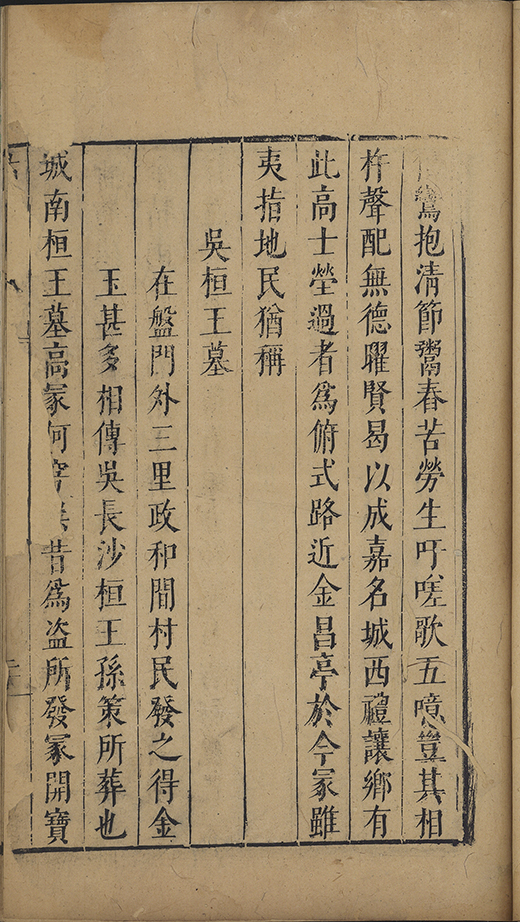 鸞抱清節鬻舂苦勞生吁嗟歌五噫豈其相
杵聲配無德曜賢曷以成嘉名城西禮讓鄉有
此高士塋過者爲俯式路近金昌亭於今冢雖
夷指地民猶稱
吳桓王墓
在盤門外三里政和間村民發之得金
玉甚多相傳吳長沙桓王孫策所葬也
城南桓王墓高冢何昔爲盜所發冢開寶